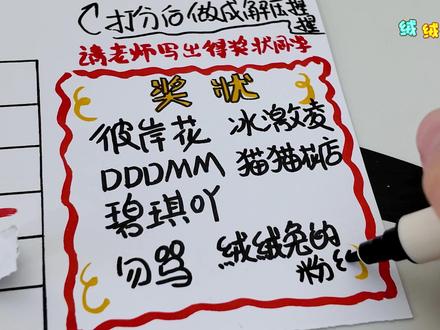 打分后做成解压捏捏
请老师写出得奖状同学
奖状
彼岸花 冰激凌
DDDMM 猫猫花店
碧琪吖
勿骂 绒绒兔的
粉丝
绒绒